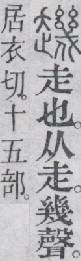 走也。从走。幾聲。
居衣切。十五部。